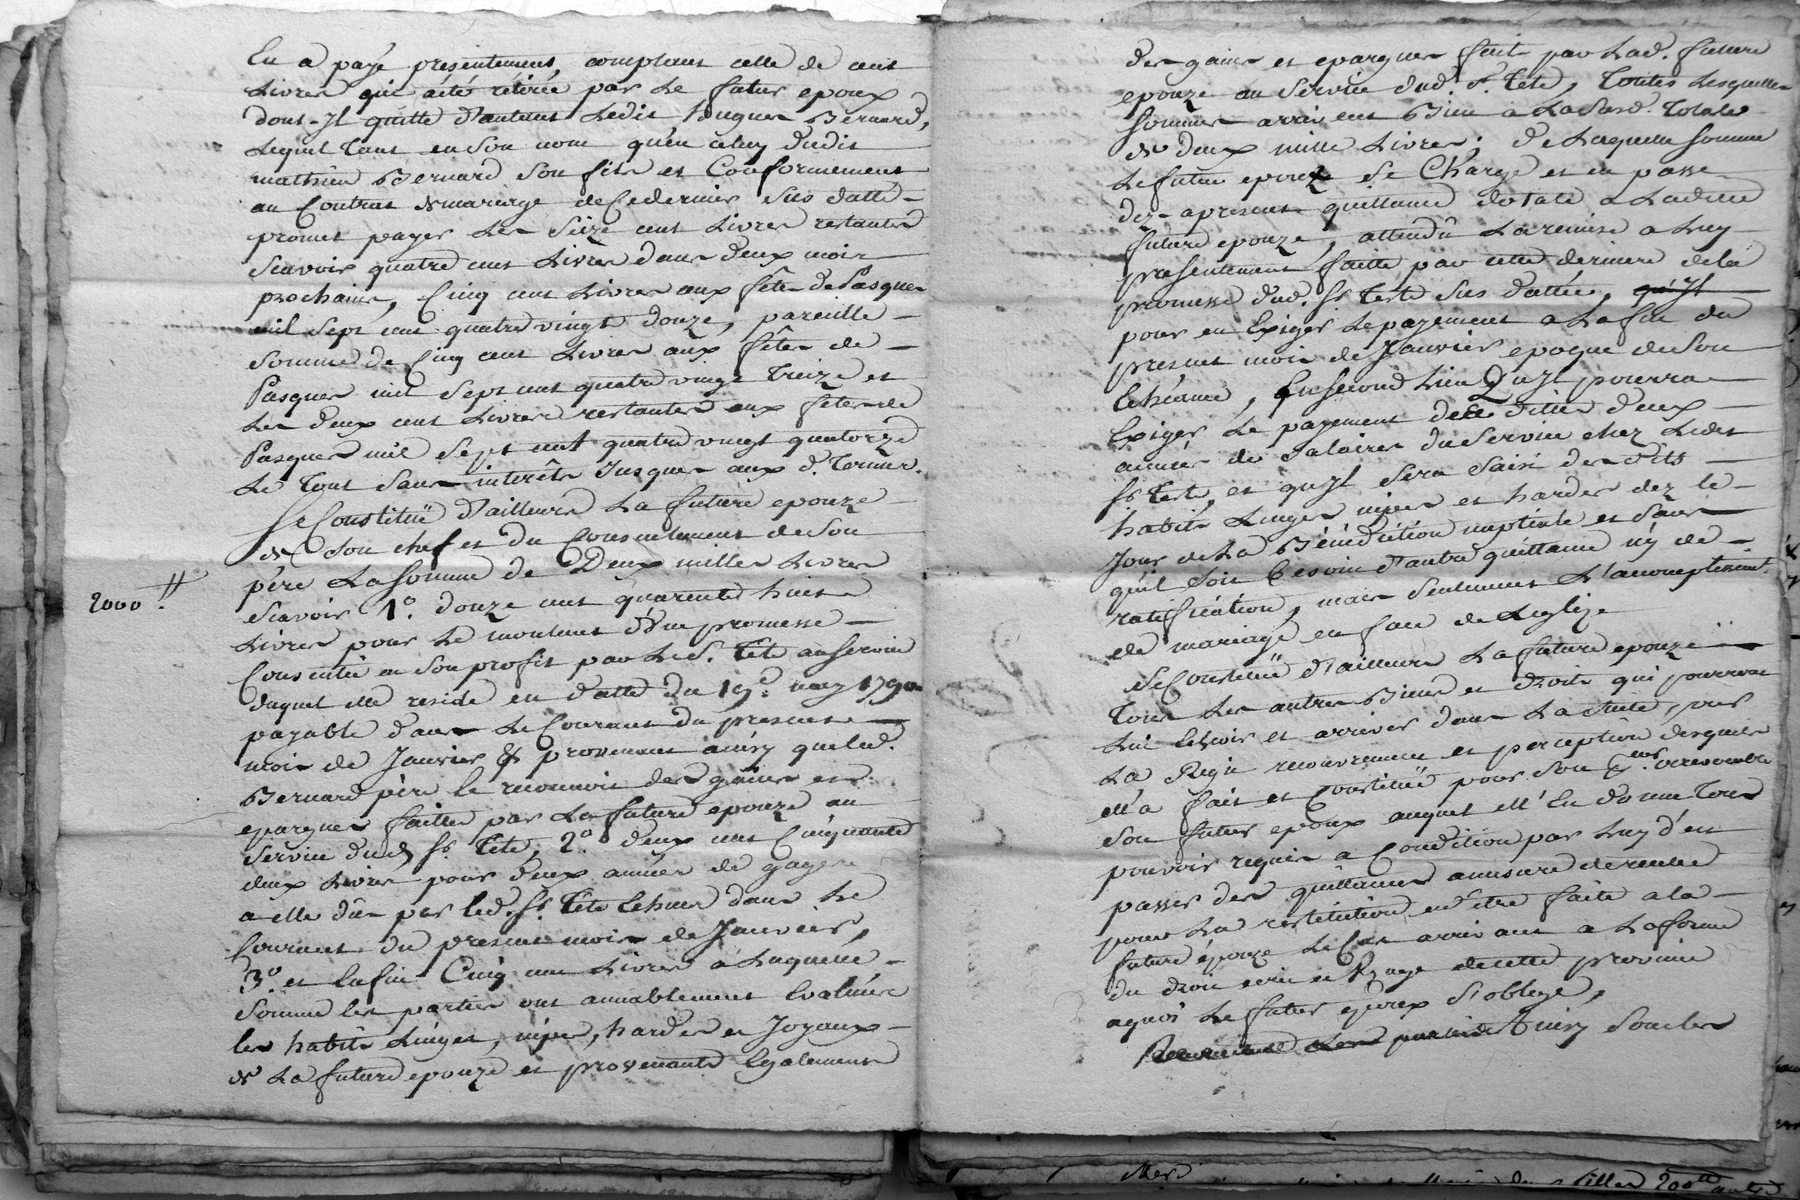 En a payé presentement comptant celle de cent
Livres qui a été retirée par le futur epoux
dont-Il quitte d'autant Ledit hugues Bernard,
Lequel tant en son nom qu'en celuy dudit
mathieu Bernard son fils et Conformement
au Contrat de mariage de Ce dernier sus datté -
promet payer Les Seize cent Livres restantes
Scavoir quatre cent Livres dans deux mois
prochains, Cinq cent Livres aux fêtes de Pasques
mil sept cent quatre vingt douze, pareille -
somme de Cinq cent Livres aux fêtes de -
Pasques mil sept cent quatre vingt treize et
Les deux cent Livres restantes aux fêtes de
Pasques mil sept cent quatre vingt quatorze
Le tout sans interêts Jusques aux d. termes.
Se Constitüe d'ailleurs La future epouze
de son chef et du Consentement de son
père La somme de Deux milles Livres
2000 ₶.
Scavoir 1.° douze cent quarente huit
Livres pour Le montant d'Une promesse -
Consentie en son profit par Le S. Tete au service
duquel elle reside en datte du 19.e may 1790
payable dans Le Courant du present
mois de Janvier & provenant ainsy que led.
Bernard père le reconnoit des gains et
epargnes faittes par La future epouze au
service dud. Sr. Tete, 2.° deux cent Cinquante
deux Livres pour deux années de gages
a elle dûs par led. Sr. Tete Echues dans Le
Courant du present mois de Janvier,
3.° et Enfin Cinq cent Livres a Laquelle -
somme les parties ont amiablement Evalüée
les habits Linges, nipes, hardes et Joyaux -
de La future epouze et provenants Egalement
des gains et epargnes fait par Lad. future
epouze au service dud. S. Tete, toutes Lesquelles
sommes arrivent Bien a La susd. totale
de deux mille Livres; de Laquelle somme
Le futur epoux se Charge et en passe
dez-apresent quittance dotale a Ladite
future epouze, attendû La remise a Luy
presentement faitte par cette derniere de la
promesse dud. Sr. Teste sus dattée, qu'Il
pour en Exiger Le payement a La fin du
present mois de Janvier epoque de son
Echéance, En second Lieu Qu'Il pourra
Exiger Le payement desdittes deux
années de salaires du service chez Ledit
Sr. Teste, et qu'Il sera saisi des dits
habits Linges nipes et hardes dez le -
Jour de La Bénédiction nuptiale et sans
qu'il soit besoin d'autre quittance ny de -
ratiffication, mais seulement L'accomplissement
de mariage en face de Leglize
Se Constitüe d'ailleurs La future epouze
tous Les autres Biens et droits qui pourront
Lui Echoir et arriver dans La suite, pour
La Regie recouvrement et perception desquels
ell'a fait et Constitüé pour son procur. irrevocable
son futur epoux auquel ell'En donne tous
pouvoirs requis a Condition par Luy d'en
passer des quittances a mesure de recette
pour La restitution en être faite a la -
future épouze Le Cas arrivant a La forme
du droit ecrit et Uzage de cette province
a quoi Le futur epoux s'oblige,